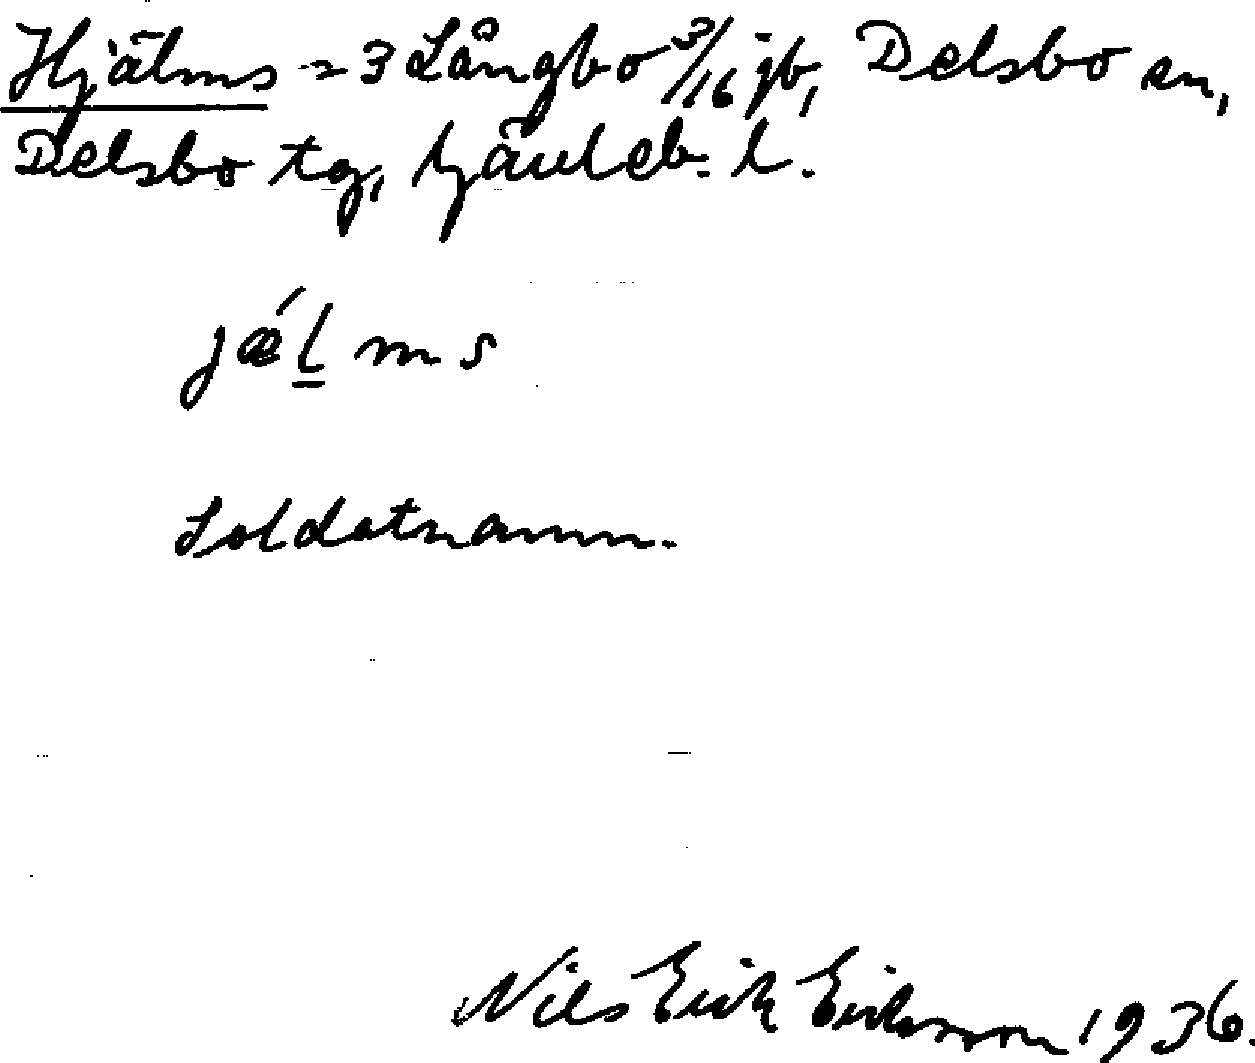 Hjälms = 3 Långbo 3/16 jb, Delsbo sn,
Delsbo tg, Gävleb. l.
jǽl̲ms
Soldatnamn.
Nils Erik Eriksson 1936.